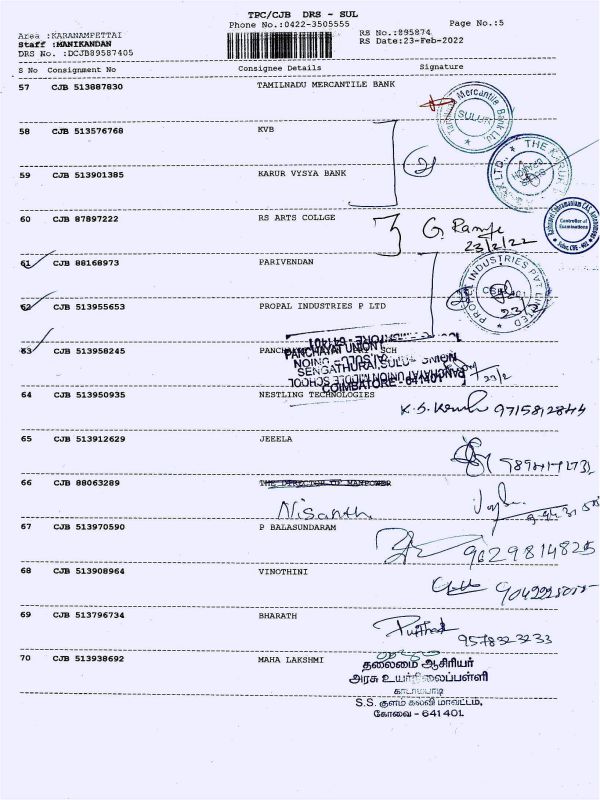 TPC/CJB DRS - SUL
Phone No.:0422-3505555 Page No.:5
Area :KARANAMPETTAI RS No.:895874
Staff :MANIKANDAN RS Date:23-Feb-2022
DRS No. :DCJB89587405
S No Consignment No Consignee Details Signature
57 CJB 513887830 TAMILNADU MERCANTILE BANK
Mercantile Bank Ltd.
SULUR
58 CJB 513576768 KVB
THE KARUR
LTD.
59 CJB 513901385 KARUR VYSYA BANK
60 CJB 87897222 RS ARTS COLLGE
23/2/22
Controller of
Examinations
61 CJB 88168973 PARIVENDAN
PROPAL INDUSTRIES PVT LIMITED
62 CJB 513955653 PROPAL INDUSTRIES P LTD
23/2
63 CJB 513958245 SCH
PANCHAYAT UNION
SENGATHURAI, SULUR UNION
PANCHAYAT UNION MIDDLE SCHOOL
COIMBATORE - 641401
23/2
64 CJB 513950935 NESTLING TECHNOLOGIES
65 CJB 513912629 JEEELA
66 CJB 88063289 THE DIRECTOR OF MANPOWER
Nisanth
67 CJB 513970590 P BALASUNDARAM
9029814825
68 CJB 513908964 VINOTHINI
69 CJB 513796734 BHARATH
9578323233
70 CJB 513938692 MAHA LAKSHMI
தலைமை ஆசிரியர்
அரசு உயர்நிலைப்பள்ளி
காடாம்பாடி
S.S. குளம் கல்வி மாவட்டம்,
கோவை - 641 401.